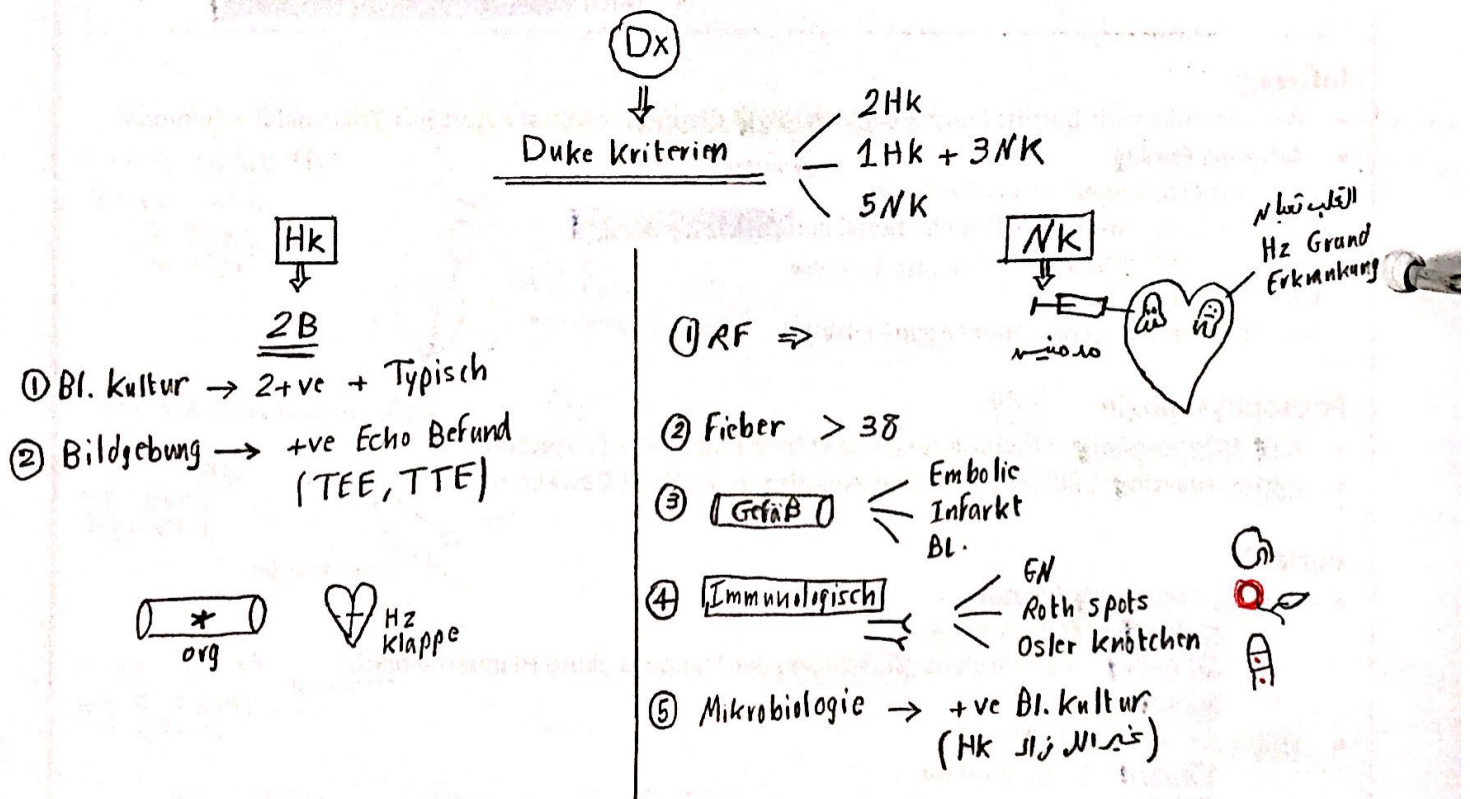 Dx
Duke Kriterien
2Hk
1Hk + 3NK
5NK
Hk
2B
① Bl. Kultur → 2+ve + Typisch
② Bildgebung → +ve Echo Befund
(TEE, TTE)
org
Hz
Klappe
NK
القلب تعبان
Hz Grand
Erkrankung
① RF ⇒
② Fieber > 38
③ Gefäß
Embolie
Infarkt
Bl.
④ Immunologisch
GN
Roth spots
Osler knötchen
⑤ Mikrobiologie → +ve Bl. Kultur
(Hk